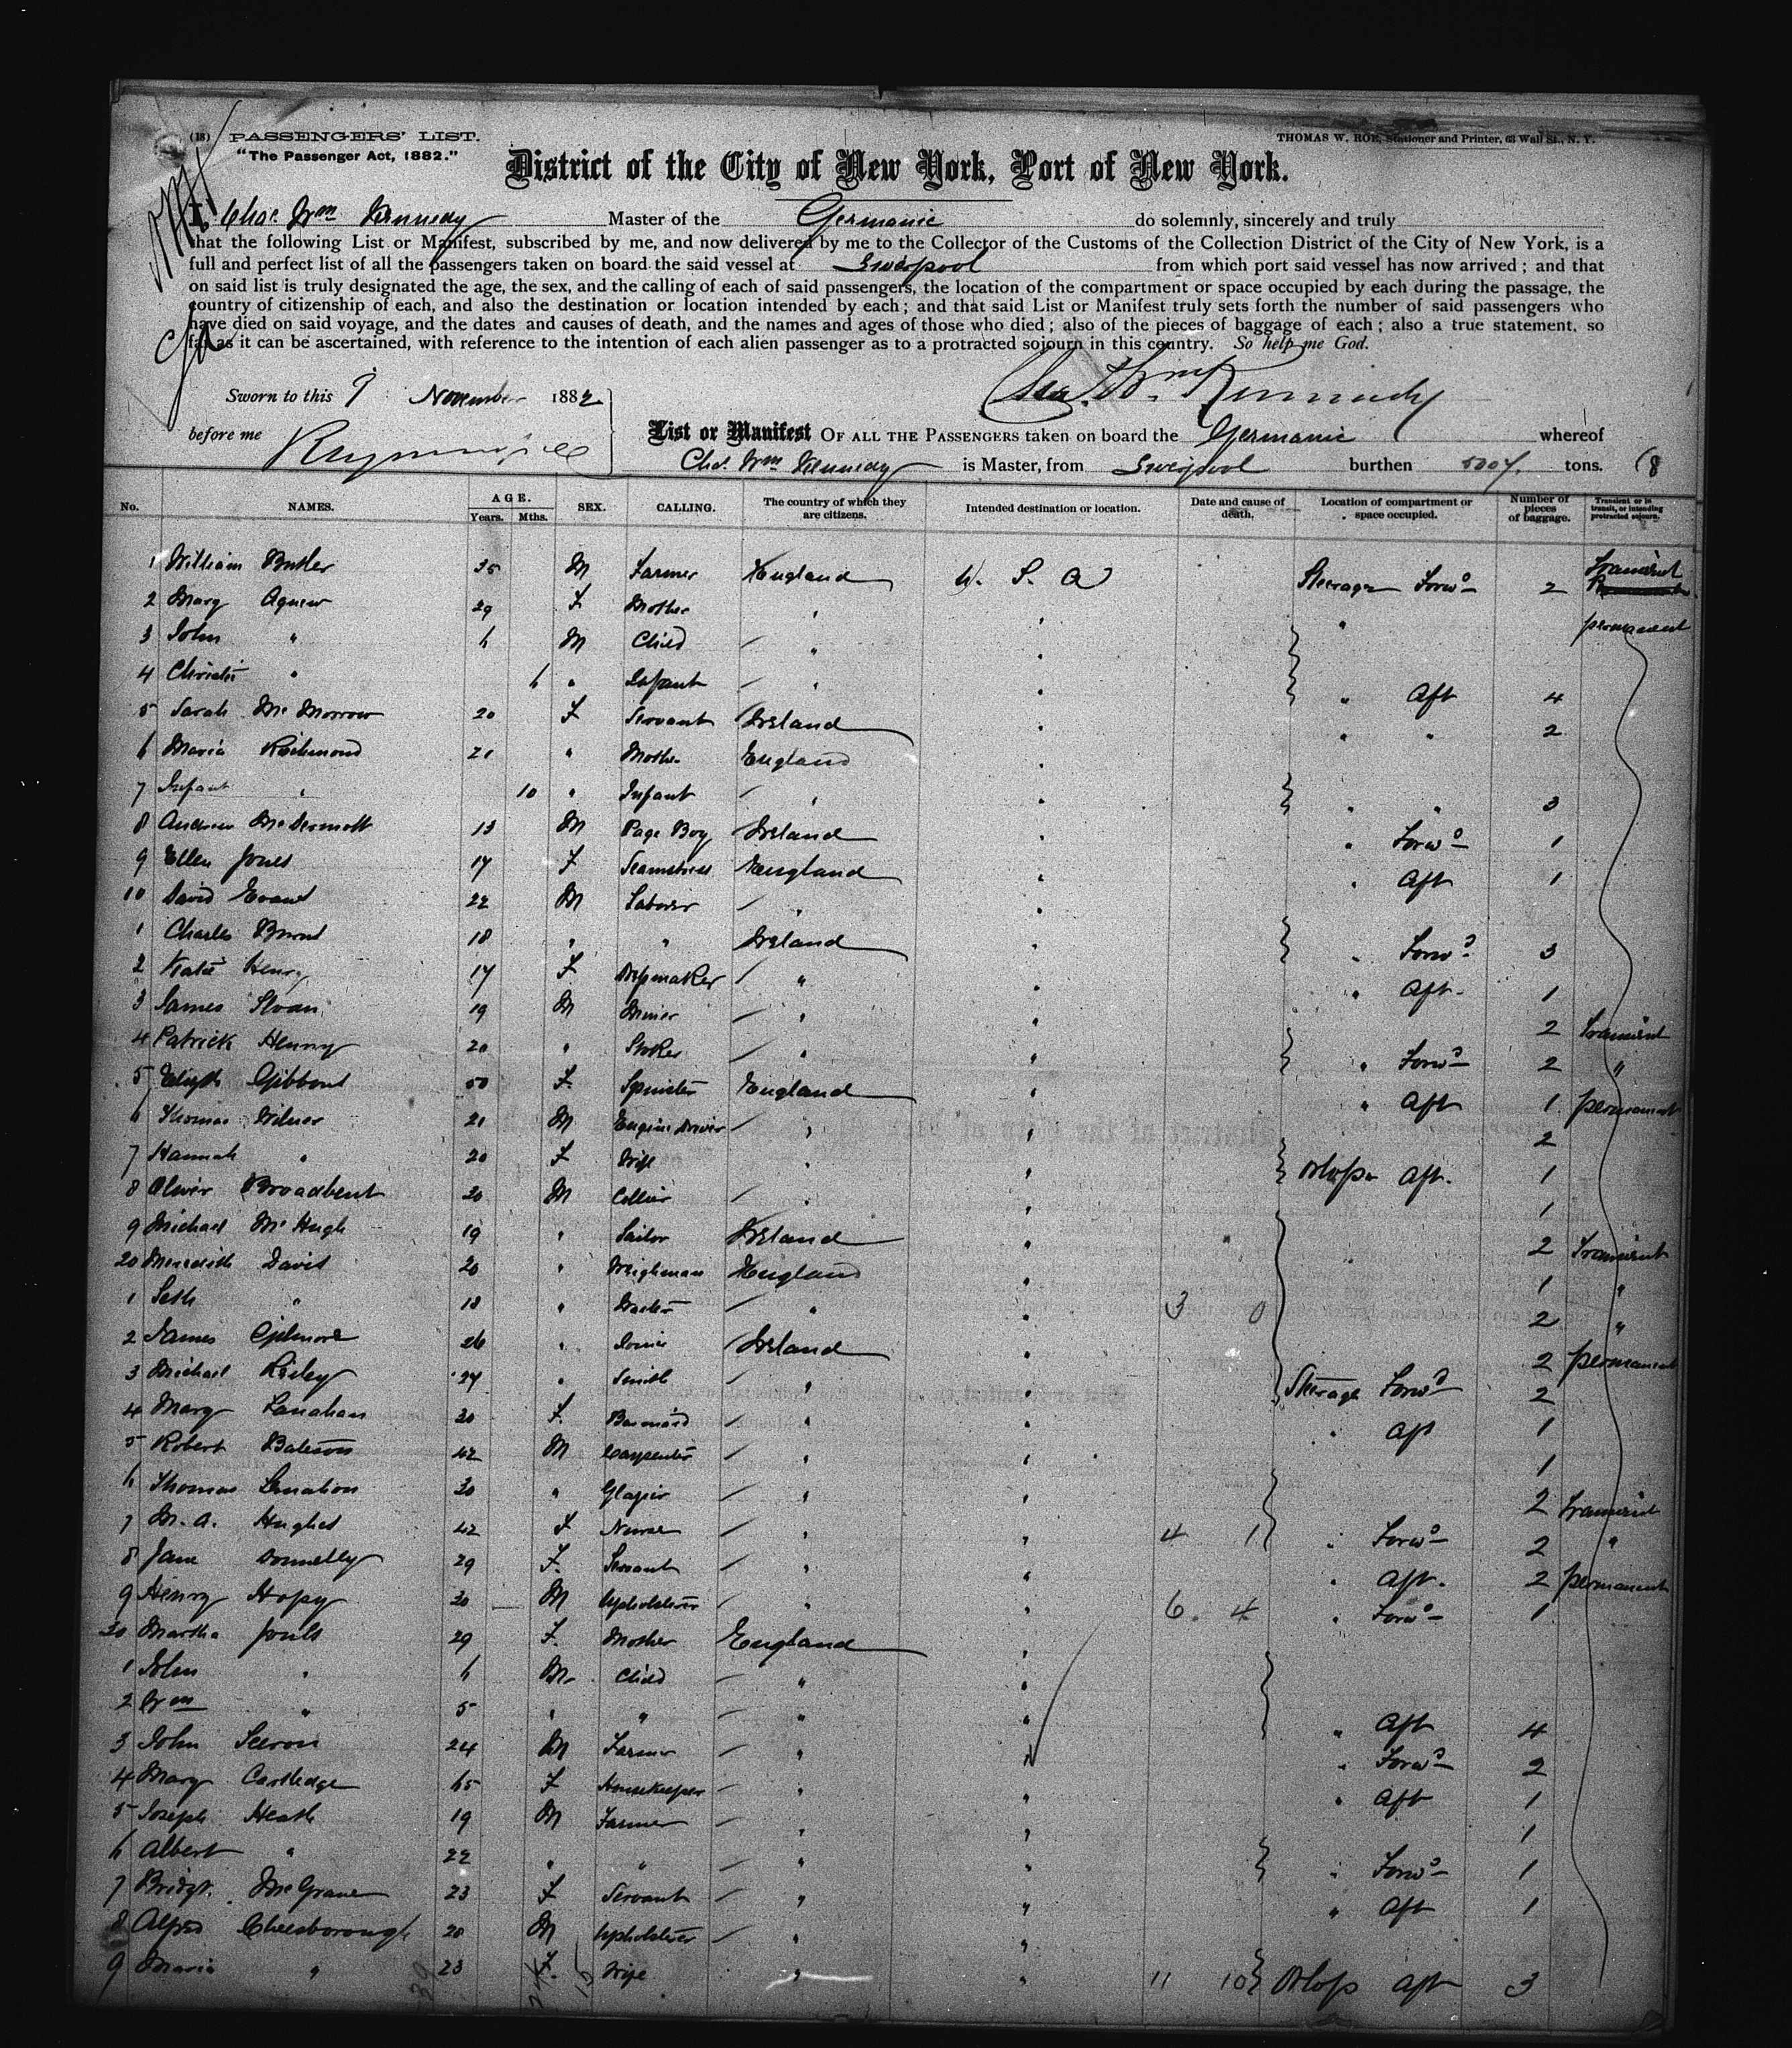 (18) PASSENGERS' LIST.
"The Passenger Act, 1882."
THOMAS W. ROE, Stationer and Printer, 63 Wall St., N. Y.
District of the City of New York, Port of New York.
I, Chas. Wm Kennedy Master of the Germanic do solemnly, sincerely and truly
that the following List or Manifest, subscribed by me, and now delivered by me to the Collector of the Customs of the Collection District of the City of New York, is a
full and perfect list of all the passengers taken on board the said vessel at Liverpool from which port said vessel has now arrived; and that
on said list is truly designated the age, the sex, and the calling of each of said passengers, the location of the compartment or space occupied by each during the passage, the
country of citizenship of each, and also the destination or location intended by each; and that said List or Manifest truly sets forth the number of said passengers who
have died on said voyage, and the dates and causes of death, and the names and ages of those who died; also of the pieces of baggage of each; also a true statement, so
far as it can be ascertained, with reference to the intention of each alien passenger as to a protracted sojourn in this country. So help me God.
Sworn to this 9 November 1882
Chas. Wm Kennedy
before me
List or Manifest OF ALL THE PASSENGERS taken on board the Germanic whereof
Chas. Wm Kennedy is Master, from Liverpool burthen 5004 tons. (8
No. NAMES. AGE. Years. Mths. SEX. CALLING. The country of which they are citizens. Intended destination or location. Date and cause of death. Location of compartment or space occupied. Number of pieces of baggage. Transient or in transit, or intending protracted sojourn.
1 William Butler 35 M Farmer England U. S. A Steerage Forwd 2 Transient
2 Mary Agnew 29 F Mother " " " permanent
3 John " 6 M Child " "
4 Christie " 6 " Infant " " " Aft 4
5 Sarah McMorrow 20 F Servant Ireland " " " 2
6 Maria Richmond 21 " Mother England "
7 Infant " 10 " Infant " " " " 3
8 Andrew McDermott 13 M Page Boy Ireland " " Forwd 1
9 Ellen Jones 17 F Seamstress England " " Aft 1
10 David Evans 22 M Laborer " "
1 Charles Burns 18 " " Ireland " " Forwd 3
2 Kate Henry 17 F Capmaker " " " Aft 1
3 James Sloan 19 M Miner " " 2 Transient
4 Patrick Henry 20 " Stoker " " " Forwd 2 "
5 Elizth Gibbons 50 F Spinster England " " Aft 1 permanent
6 Thomas Milner 21 M Engine Driver " " 2
7 Hannah " 20 F Wife " " Orlop Aft 1
8 Oliver Broadbent 20 M Collier " " 1
9 Michael McHugh 19 " Sailor Ireland " 2 Transient
20 Meredith Davis 20 " Weighman England " 1 "
1 Seth " 18 " " " 3 0 2 "
2 James Gilmore 26 " Ireland " 2 permanent
3 Michael 24 " Smith " " Steerage Forwd 2
4 Mary Lanahan 20 F Barmaid " " " Aft 1
5 Robert Bateson 42 M Carpenter " " 1
6 Thomas 30 " Glazier " " 2 Transient
7 M. A. Hughes 42 F Nurse " " 4 1 " Forwd 2 "
8 Jane Donnelly 29 F Servant " " " Aft 2 permanent
9 Henry 30 M Upholsterer " " 6 4 " Forwd 1
30 Martha Jones 29 F Mother England "
1 John " 6 M Child " "
2 Wm " 5 " " " " " Aft 4
3 John 24 M Farmer " " " Forwd 2
4 Mary Cartledge 65 F Housekeeper " " " Aft 1
5 Joseph Heath 19 M Farmer " " 1
6 Albert " 22 " " " " " Forwd 1
7 Bridgt. McGrane 23 F Servant " " " Aft 1
8 Alfred Cheesborough 20 M Upholsterer " "
9 Maria " 23 F Wife " " 11 10 Orlop Aft 3